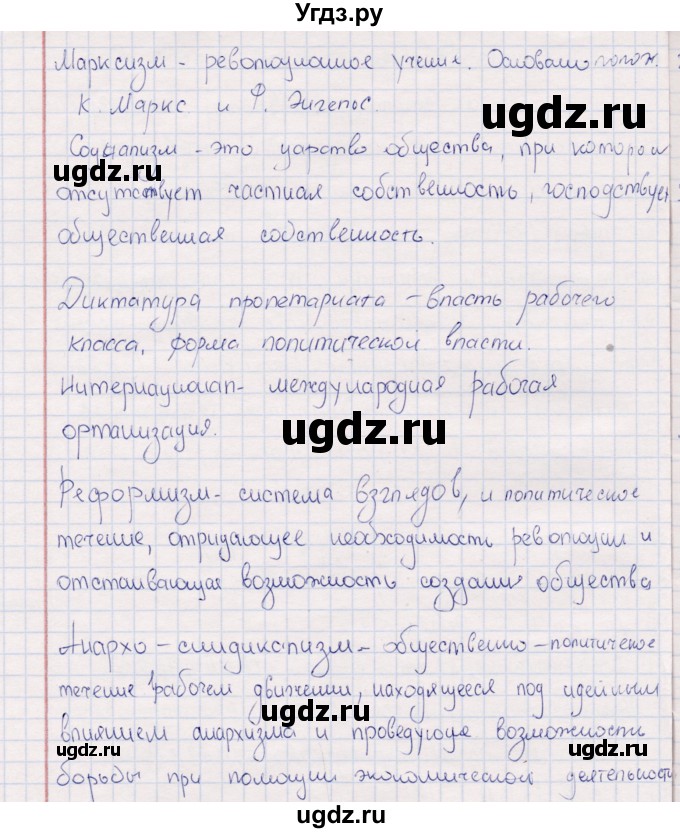 Угдз.ру
Марксизм - революционное учение. Основали полож.
К. Маркс. и Ф. Энгельс.
ugdz.ru
Социализм - это царство общества, при котором
ugdz.ru
отсутствует частная собственность, господствует
общественная собственность.
Диктатура пролетариата - власть рабочего
класса, форма политической власти.
Интернационал - международная рабочая
ugdz.ru
организация.
Реформизм - система взглядов, и политическое
течение, отрицающее необходимость революции и
отстаивающая возможность создания общества
Анархо - синдикализм - общественно - политическое
течение рабочем движении, находящееся под идейным
ugdz.ru
влиянием анархизма и проведующе возможности
ugdz.ru
ugdz.ru
борьбы при помощи экономической деятельности
ugdz.ru